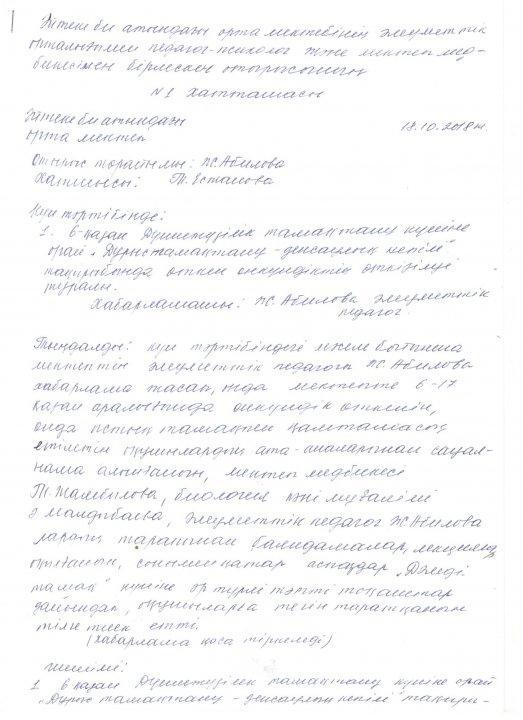 Әйтеке би атындағы орта мектебінің әлеуметтік
педагог-психолог және мектеп мед-
бикесімен біріккен отырысының
№1 хаттамасы
Әйтеке би атындағы
орта мектеп 18.10.2018ж.
Отырыс төрайымы: Ж Абилова
Хатшысы: Т. Естаиова
Күн тәртібінде:
1. 6-қазан Дүниежүзілік тамақтану күніне
орай „Дұрыс тамақтану – денсаулық кепілі"
тақырыбында өткен онкүндіктің өткізілуі
туралы.
Хабарламашы: Ж. Абилова әлеуметтік
педагог
Тыңдалды: күн тәртібіндегі мәселе бойынша
мектептің әлеуметтік педагогы Ж Абилова
хабарлама жасап, онда мектепте 6-17
қазан аралығында онкүндік өткенін,
онда ыстық тамақпен қамтамасыз
етілетін оқушылардың ата-аналарынан сауал-
нама алынғанын, мектеп медбикесі
Т. Жамбилова, биология пәні мұғалімі
э Малдыбаева, әлеуметтік педагог Ж Абилова
тарапынан баяндамалар, лекциялар
оқылғанын, сонымен қатар аспаздар „Дәмді
тамақ" күніне әр түрлі тәтті тоқаштар
дайындап, оқушыларға тегін таратқанын
тілге тиек етті.
(хабарлама қоса тіркелді)
шешімі:
1 6 қазан Дүниежүзілік тамақтану күніне орай
„Дұрыс тамақтану – денсаулық кепілі" тақыры-